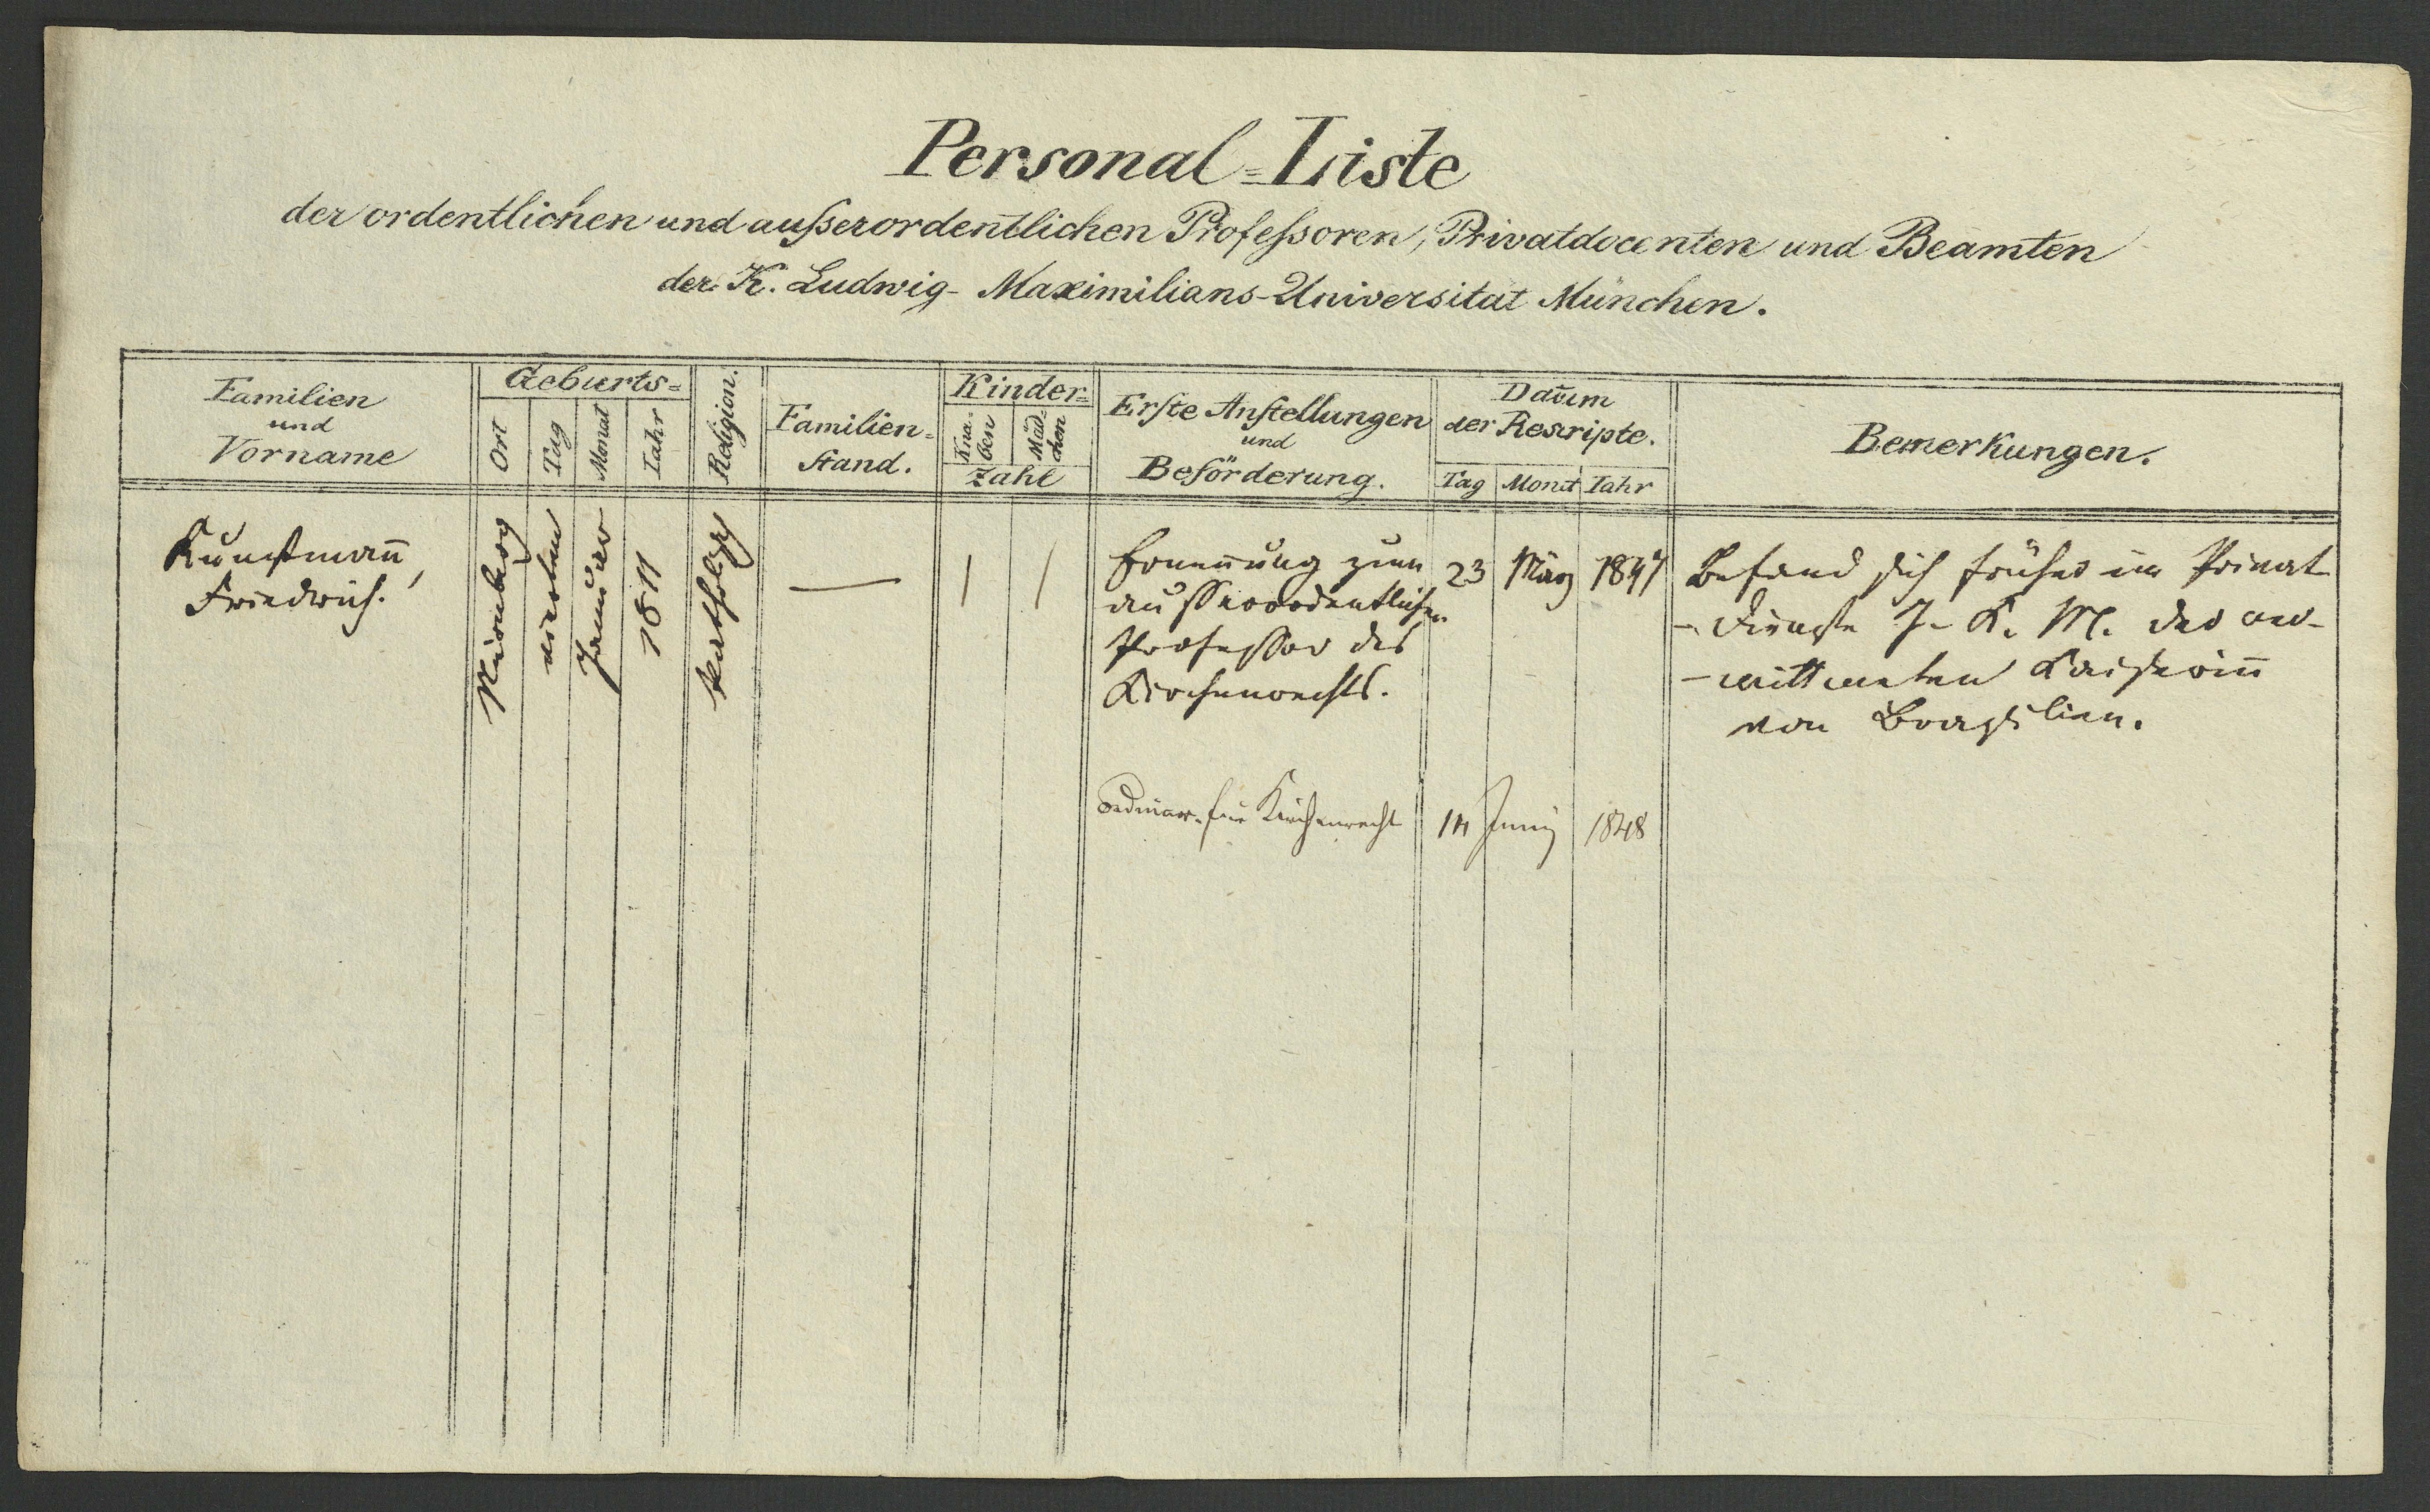 Personal=Liste
der ordentlichen und außerordentlichen Profeßoren, Privatdocenten und Beamten
der K. Ludwig-Maximilians-Universität München.
Familien
und
Vorname
Geburts=
Ort
Tag
Monat
Iahr
Religion.
Familien=
stand.
Kinder=
Kna=
ben
Mäd=
chen
Zahl
Erste Anstellungen
und
Beförderung.
Datum
der Rescripte.
Tag Monat Iahr
Bemerkungen.
Kunstmañ,
Friedrich.
Nürnberg
vierten
Januar
1811
katholisch
—
/ /
Ernennung zum
ausserordentlichen
Professor des
Kirchenrechts.
23 März 1847
Befand sich früher im Privat
-dienste I. K. M. der ver-
-wittweten Kaiserinn
von Brasilien.
Ordinar. für Kirchenrecht
14 Junij 1848